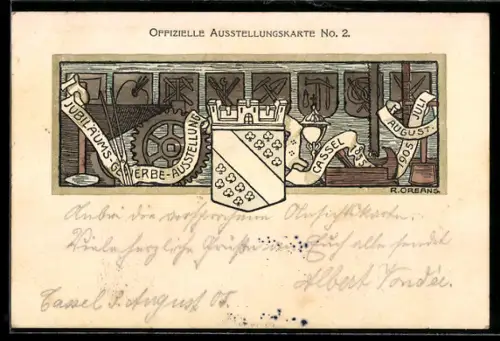 OFFIZIELLE AUSSTELLUNGSKARTE NO. 2.
JUBILÄUMS-GEWERBE-AUSSTELLUNG
CASSEL
JULI
AUGUST.
1905
R. OREANS.
Anbei die versprochene Ansichtskarte.
Viele herzliche Grüße an Euch alle sendet
Albert
Cassel 8. August 05.